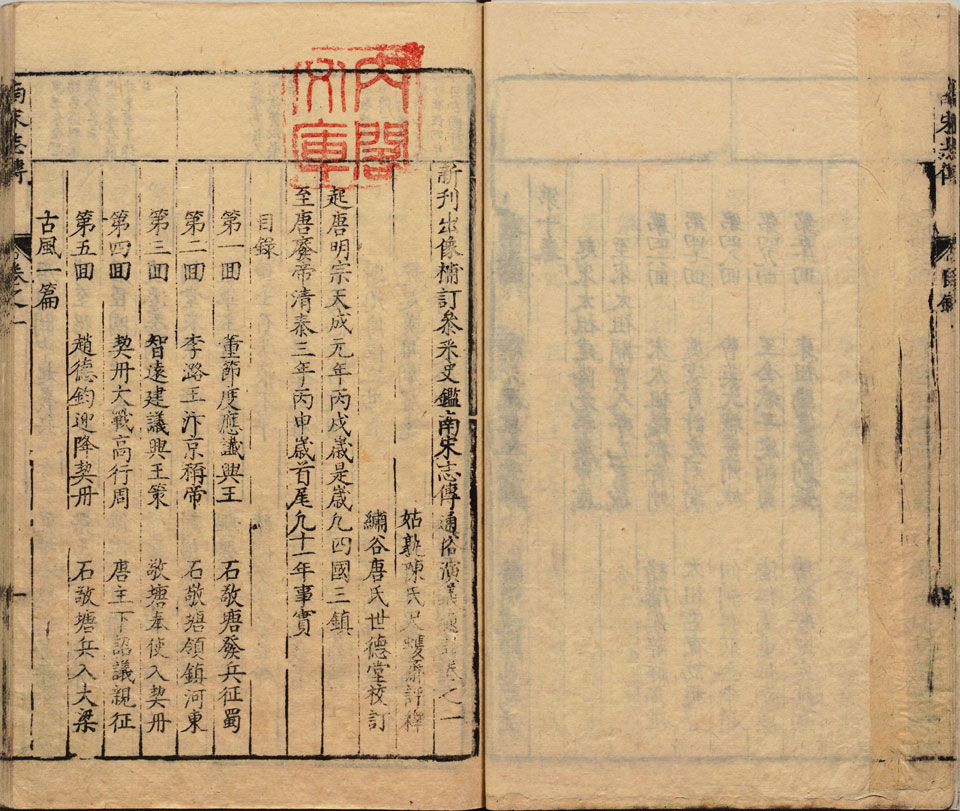 内閣文庫
新刊出像補訂參采史鑑南宋志傳通俗演義題評卷之一
姑孰陳氏尺蠖齋評釋
繡谷唐氏世德堂校訂
起唐明宗天成元年丙戌歲是歲凡四國三鎮
至唐廢帝清泰三年丙申歲首尾凡十一年事實
目錄
第一回 董節度應讖興王 石敬塘發兵征蜀
第二回 李潞王汴京稱帝 石敬塘領鎮河東
第三回 智遠建議興王策 敬塘奉使入契丹
第四回 契丹大戰高行周 唐主下詔議親征
第五回 趙德鈞迎降契丹 石敬塘兵入大梁
古風一篇
南宋志傳 卷之一 一